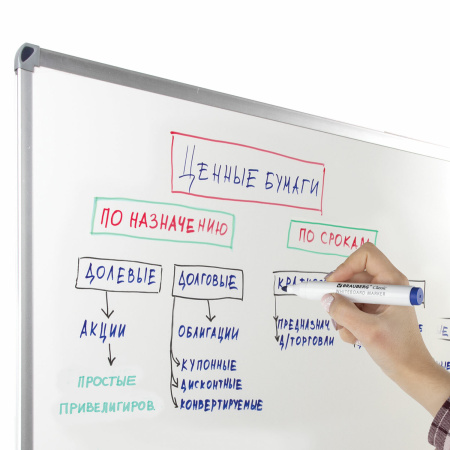 ЦЕННЫЕ БУМАГИ
ПО НАЗНАЧЕНИЮ
ПО СРОКАМ
ДОЛЕВЫЕ
ДОЛГОВЫЕ
АКЦИИ
ОБЛИГАЦИИ
ПРЕДНАЗНАЧ
Д/ТОРГОВЛИ
КУПОННЫЕ
ПРОСТЫЕ
ДИСКОНТНЫЕ
ПРИВЕЛИГИРОВ
КОНВЕРТИРУЕМЫЕ
BRAUBERG Classic
WHITEBOARD MARKER